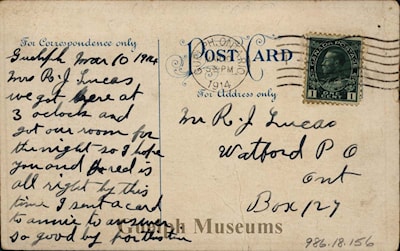 For Correspondence only
POST CARD
For Address only
GUELPH, ONTARIO
PM
1914
CANADA POSTAGE
1 1
Guelph Mar 10 1914
Mrs R. J Lucas
we got here at
3 oclock and
got our room for
the night so I hope
you and are is
all right by this
time I sent a card
to annie to answer
so good by for this time
Mr R. J Lucas
Watford P O
Ont
Box 127
Guelph Museums
986.18.156